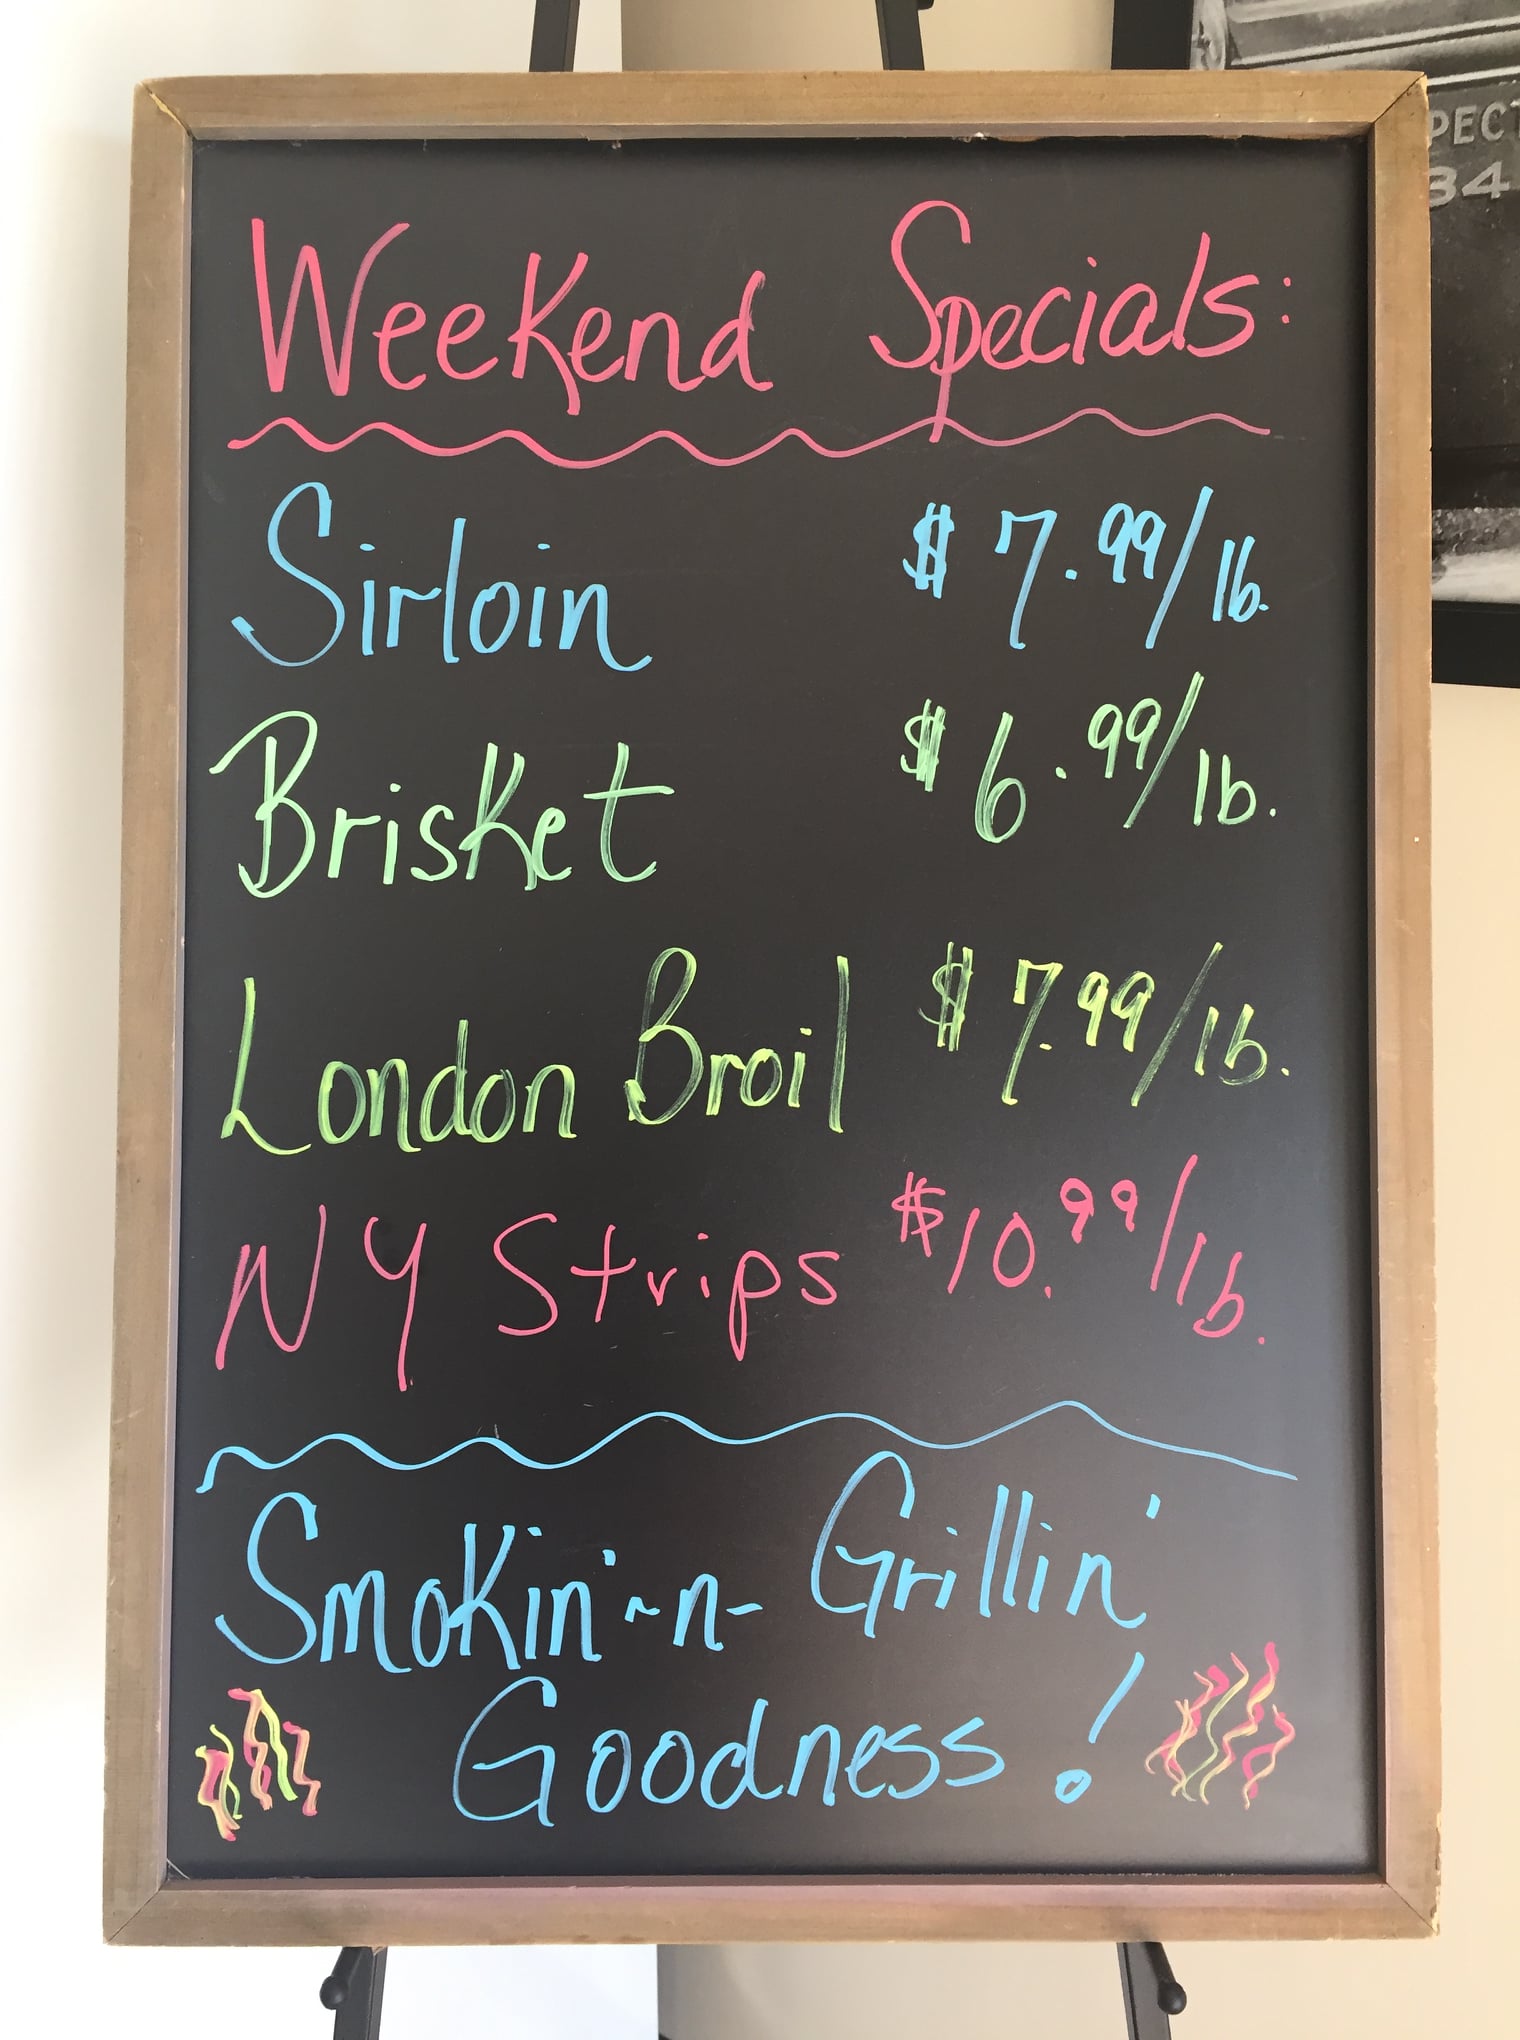 Weekend Specials:
Sirloin $7.99/lb.
Brisket $6.99/lb.
London Broil $7.99/lb.
NY Strips $10.99/lb.
Smokin'-n- Grillin'
Goodness!
84